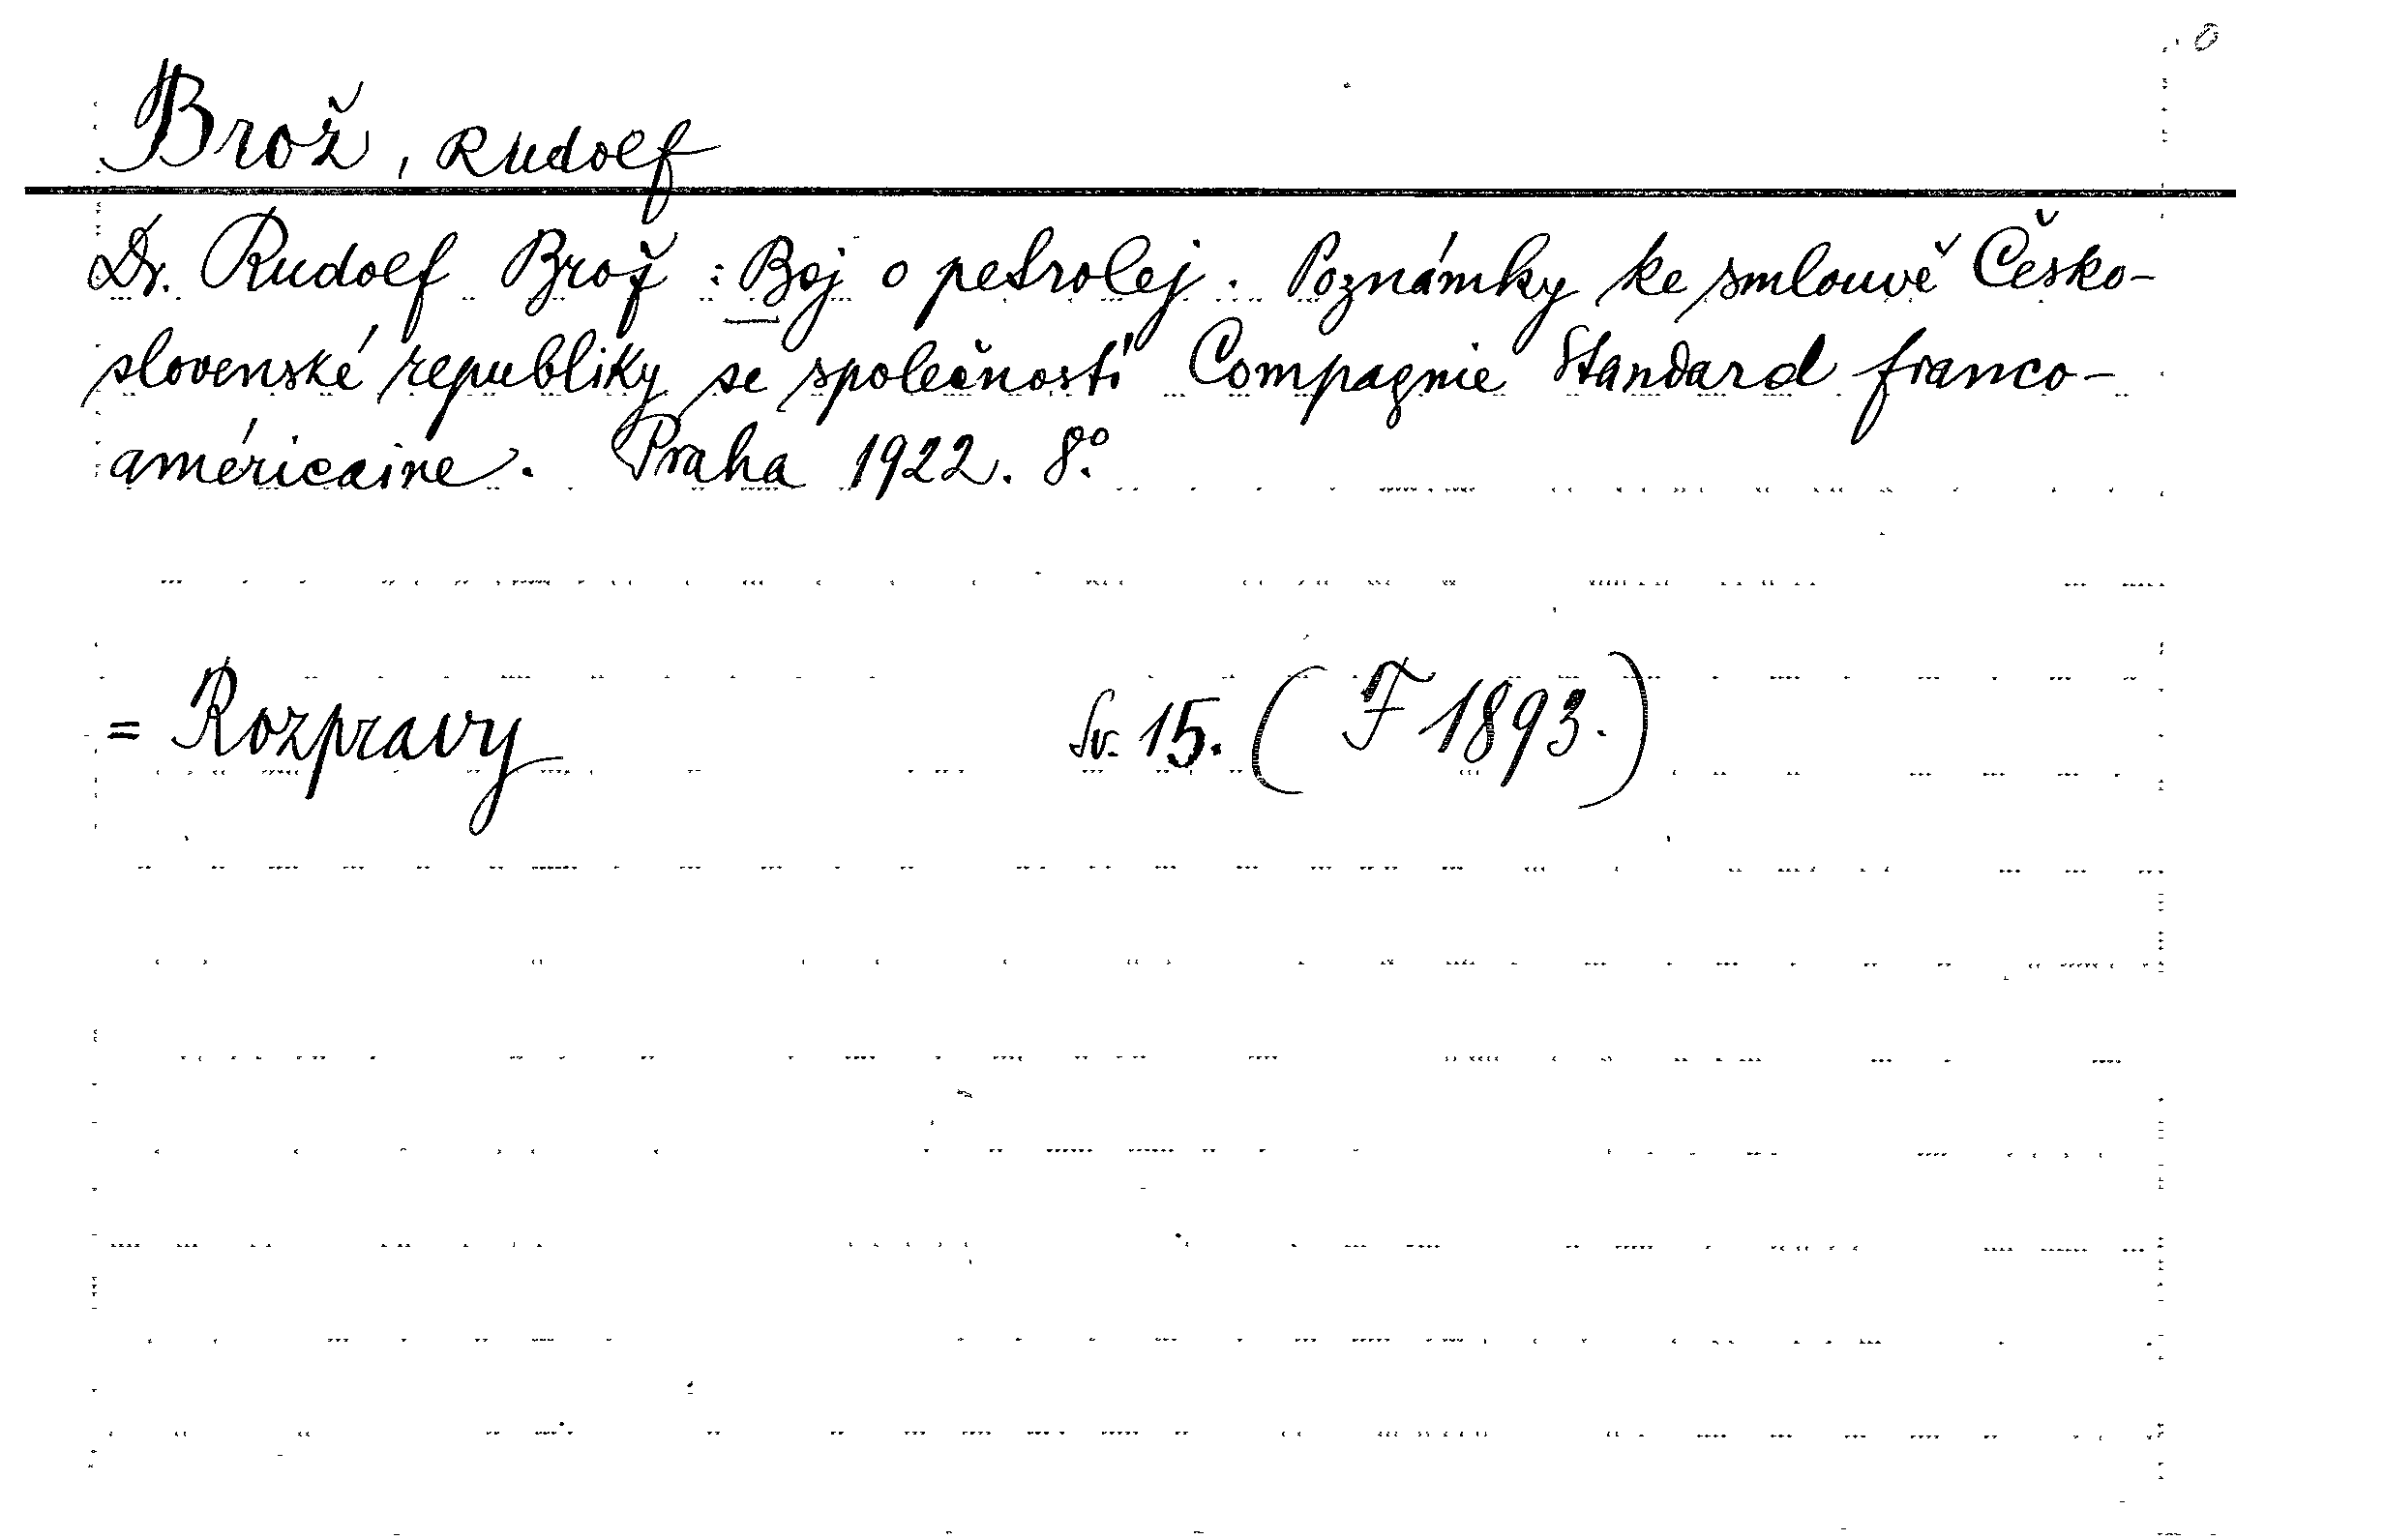 Brož, Rudolf
Dr. Rudolf Brož : Boj o petrolej. Poznámky ke smlouvě Česko-
slovenské republiky se společností Compagnie Standard franco-
américaine. Praha 1922. 8°.
= Rozpravy Sv. 15. (F 1893.)